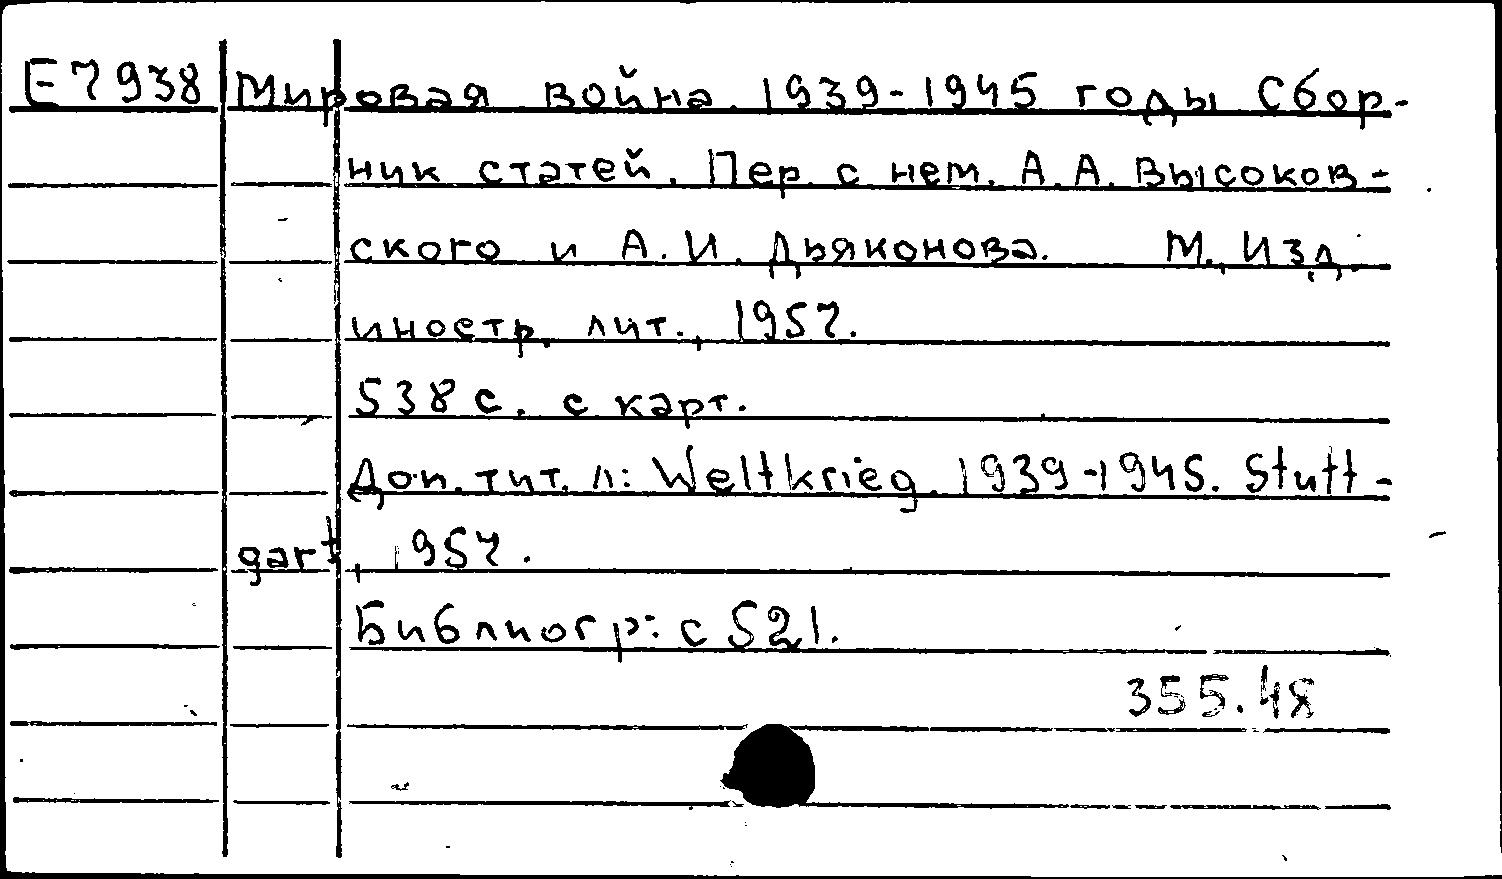 Е7938 Мировая война. 1939-1945 годы Сбор-
ник статей. Пер. с нем. А.А. Высоков-
ского и А.И. Дьяконова. М., Изд.
иностр. лит., 1957.
538 с. с карт.
Доп. тит. л: Weltkrieg. 1939-1945. Stutt-
gart, 1957.
Библиогр: с 521.
355.48